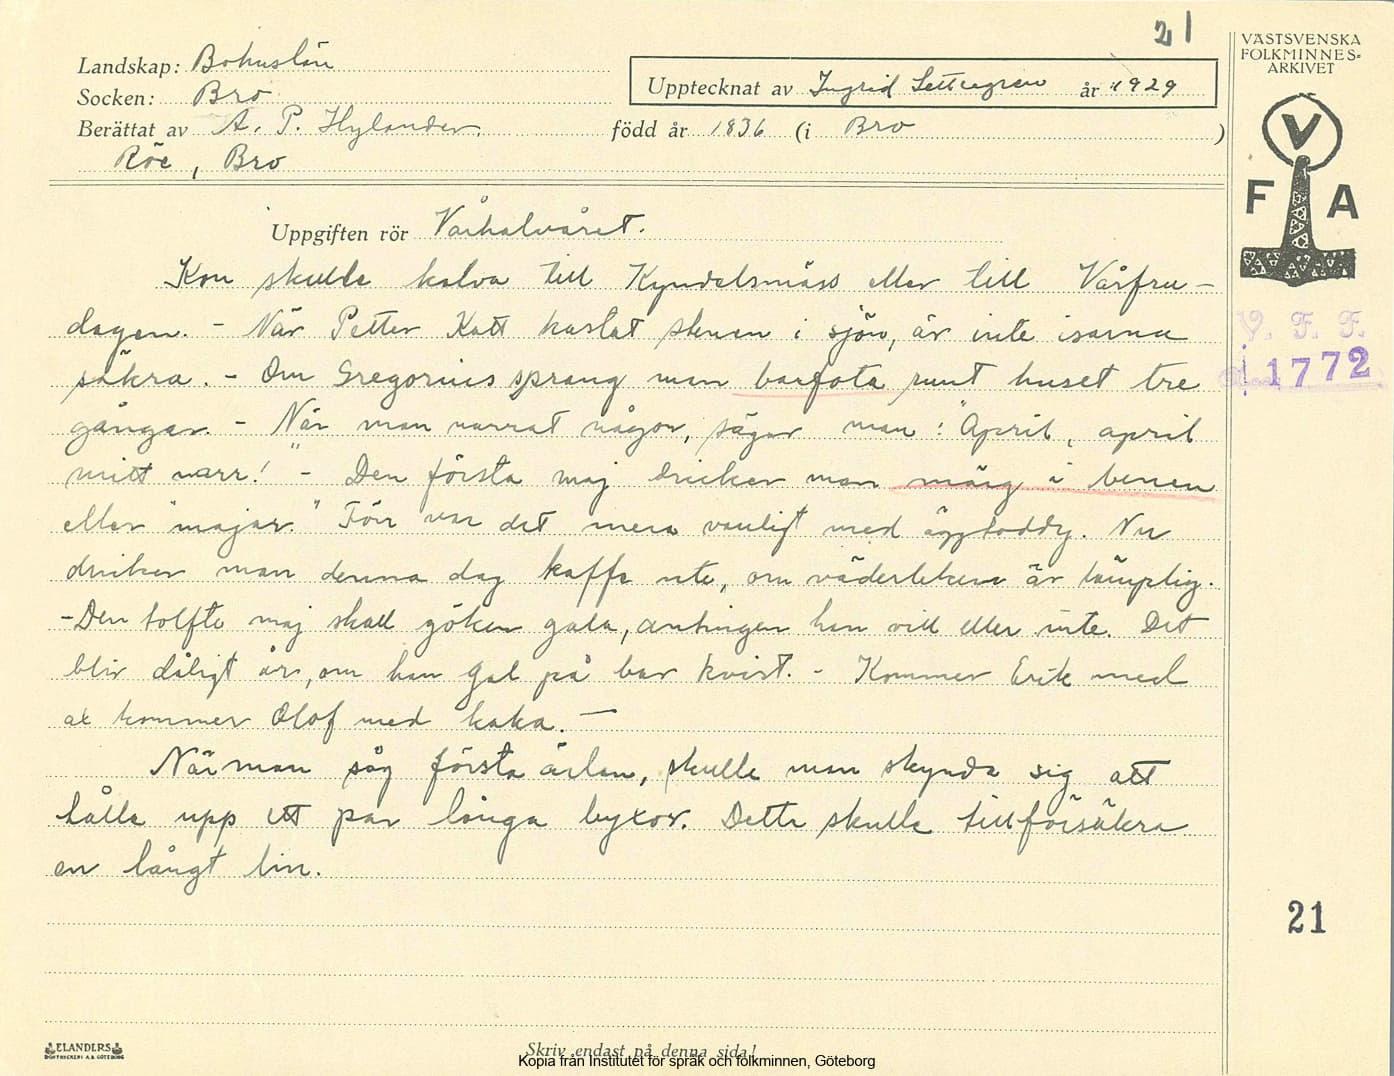 21
VÄSTSVENSKA
FOLKMINNES=
ARKIVET
Landskap: Bohuslän
Upptecknat av Ingrid år 1929
Socken: Bro
Berättat av A. P. Hylander. född år 1836 (i Bro )
Röe, Bro
V
F A
Uppgiften rör Vårhalvåret.
Kon skulle kalva till Kyndelsmäss eller till Vårfru-
dagen. - När Petter Katt kastat stenen i sjön, är inte isarna
säkra. - Om Gregorius sprang man barfota runt huset tre
gånger. - När man narrat någon, säger man: "April, april
mitt narr!" - Den första maj dricker man märg i benen
eller "majar." Förr var det mera vanligt med äggtoddy. Nu
dricker man denna dag kaffe ute, om väderleken är lämplig.
- Den tolfte maj skall göken gala, antingen han vill eller inte. Det
blir dåligt år, om han gal på bar kvist. - Kommer Erik med
ax kommer Olof med kaka. -
När man såg första ärlan, skulle man skynda sig att
hålla upp ett par långa byxor. Detta skulle tillförsäkra
en långt lin.
V. F. F.
1772
21
ELANDERS
BOKTRYCKERI A.B. GÖTEBORG
Skriv endast på denna sida!
Kopia från Institutet för språk och folkminnen, Göteborg